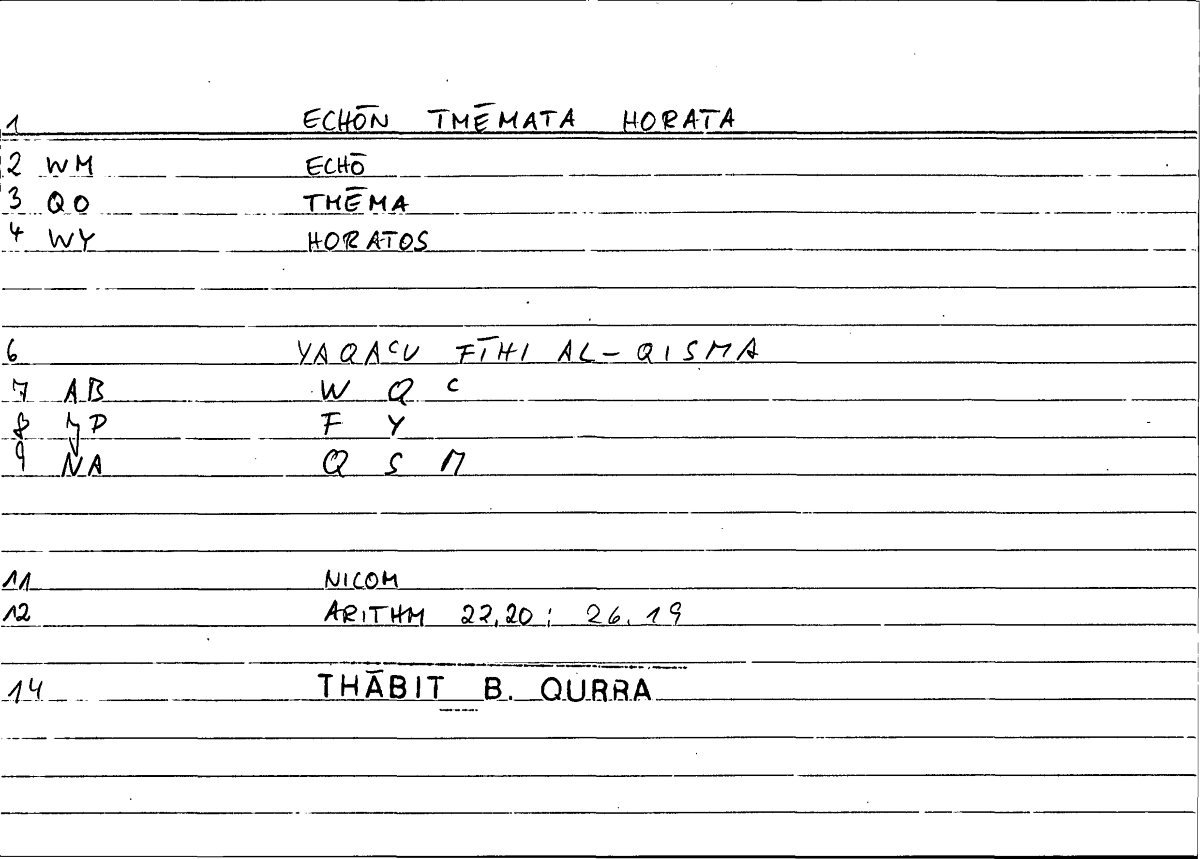 1 ECHŌN TMĒMATA HORATA
2 WM ECHŌ
3 QO TMĒMA
4 WY HORATOS
6 YAQAᶜU FĪHI AL-QISMA
7 AB W Q ᶜ
8 JP F Y
9 NA Q S M
11 NICOM
12 ARITHM 22,20; 26.19
14 THĀBIT B. QURRA